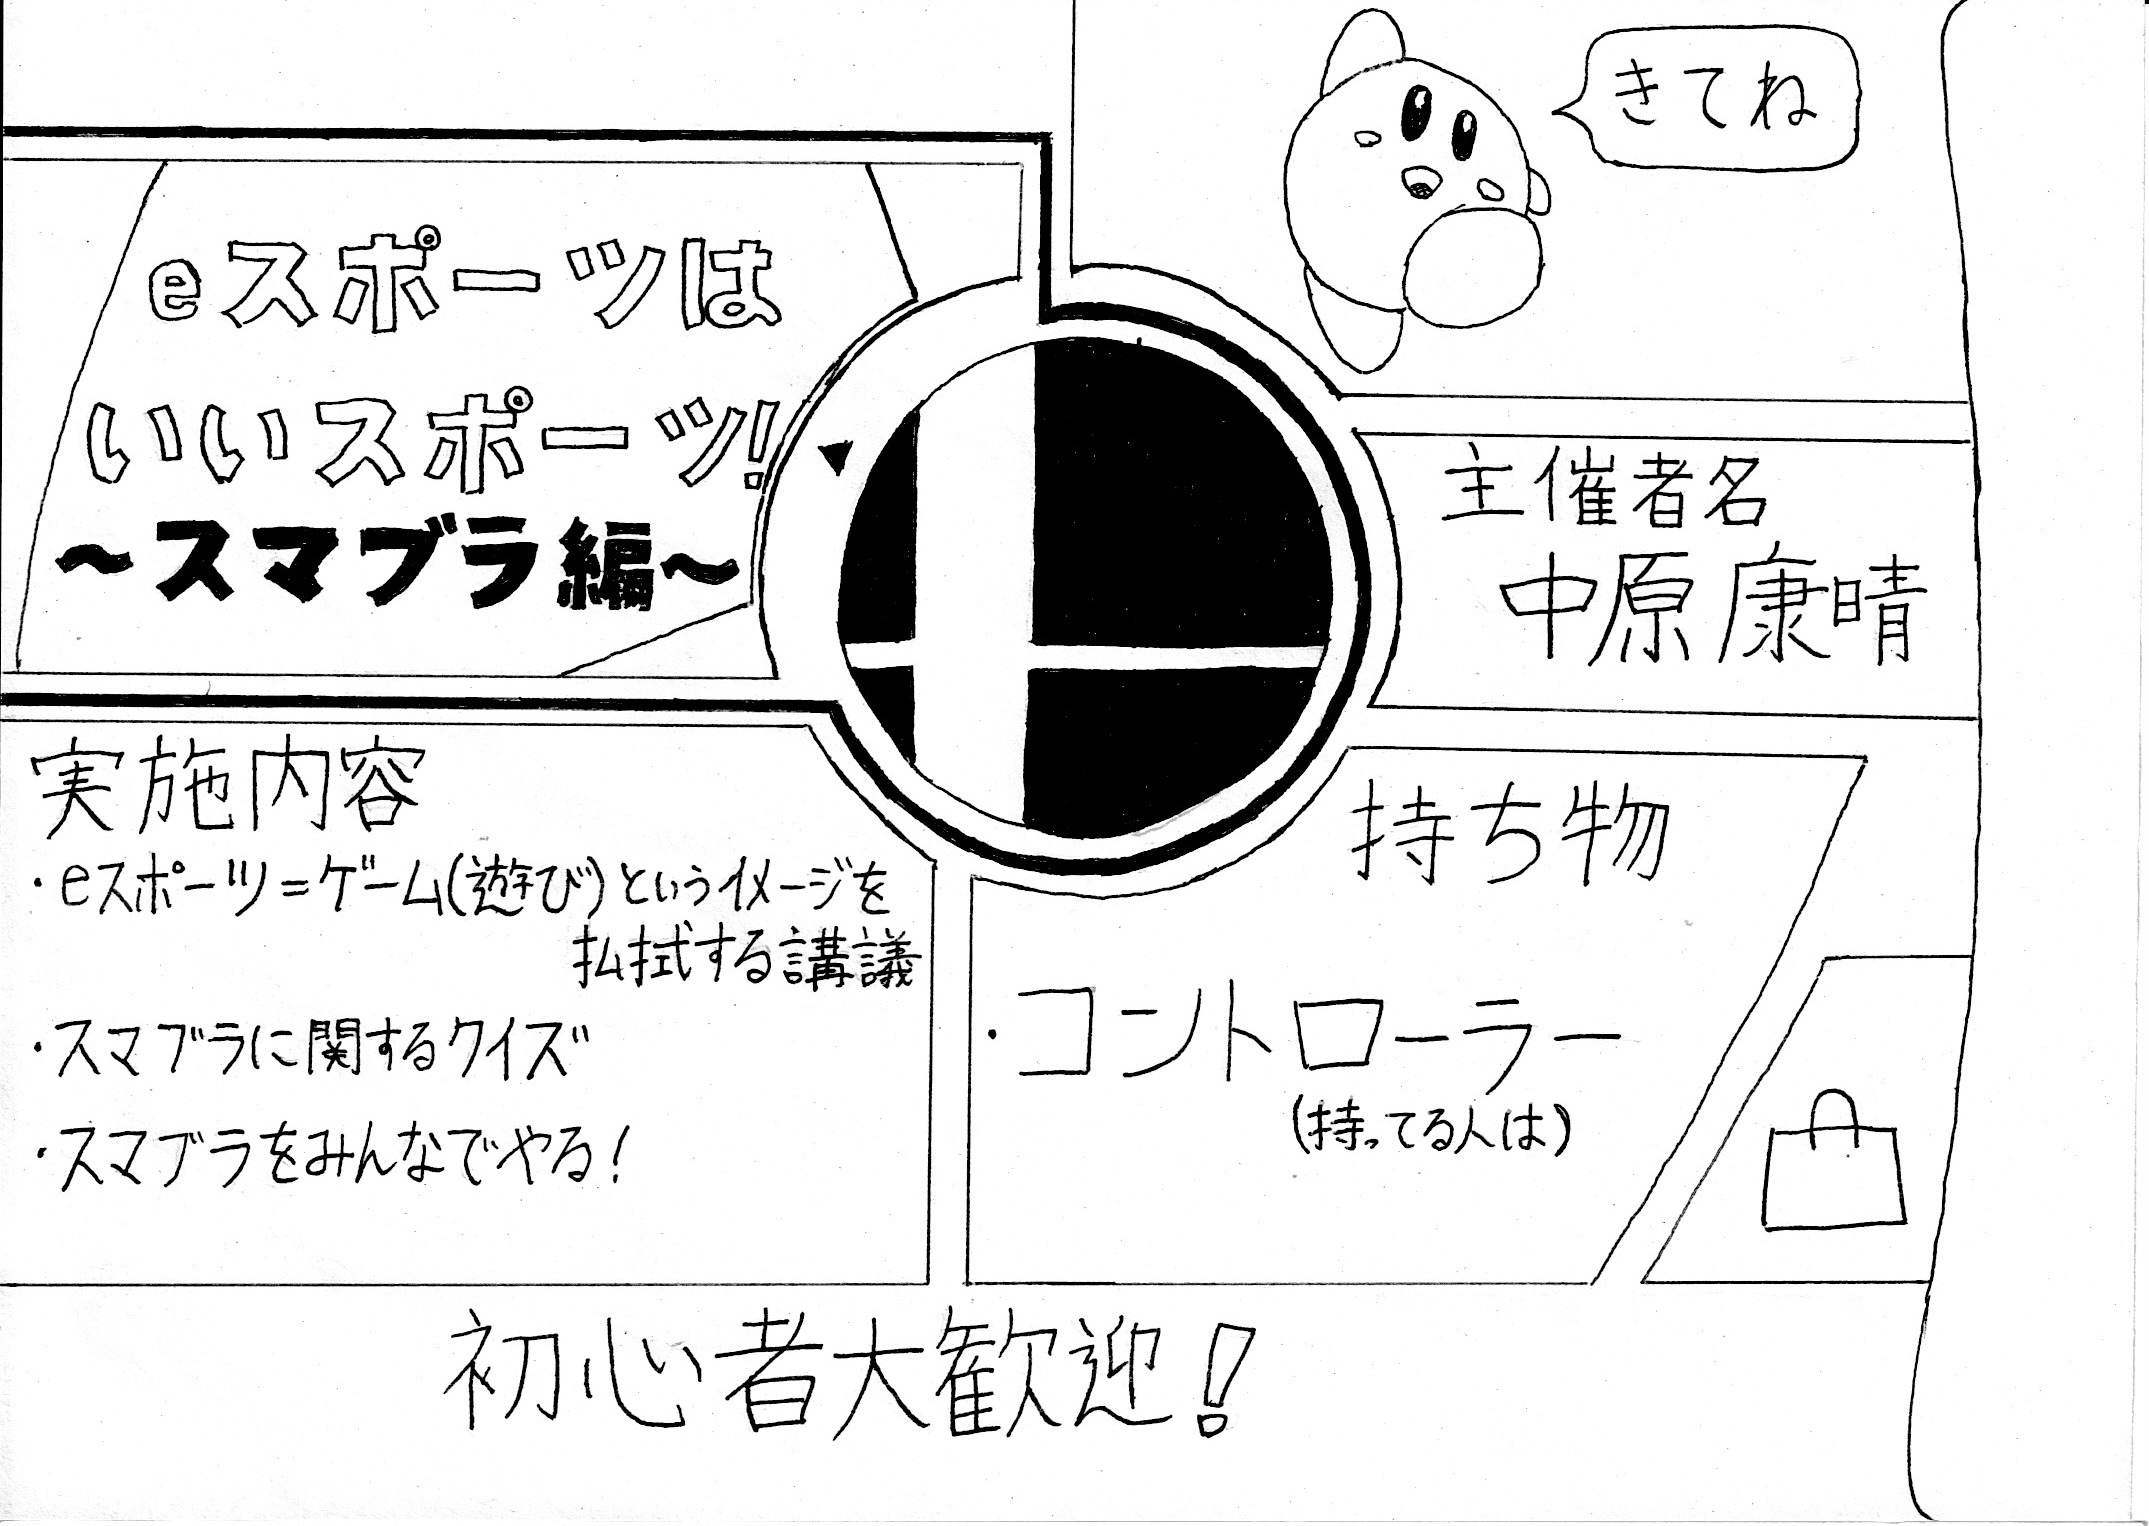 eスポーツは
いいスポーツ!
～スマブラ編～
きてね
主催者名
中原康晴
実施内容
・eスポーツ=ゲーム(遊び)というイメージを
払拭する講議
・スマブラに関するクイズ
・スマブラをみんなでやる!
持ち物
・コントローラー
(持ってる人は)
初心者大歓迎!